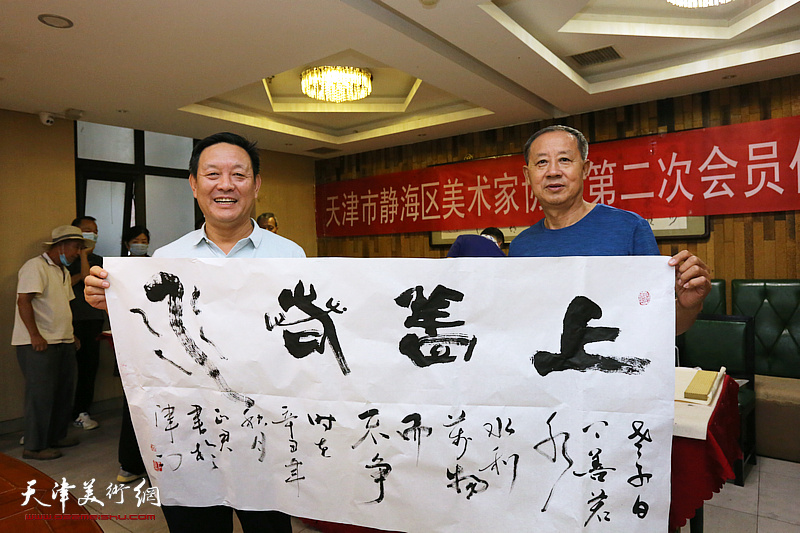 天津市静海区美术家协
第二次会员代
上善若水
老子曰
上善若
水
水利
萬物
而
不争
时在
辛丑年
秋月
正君
書於
津门
天津美術網